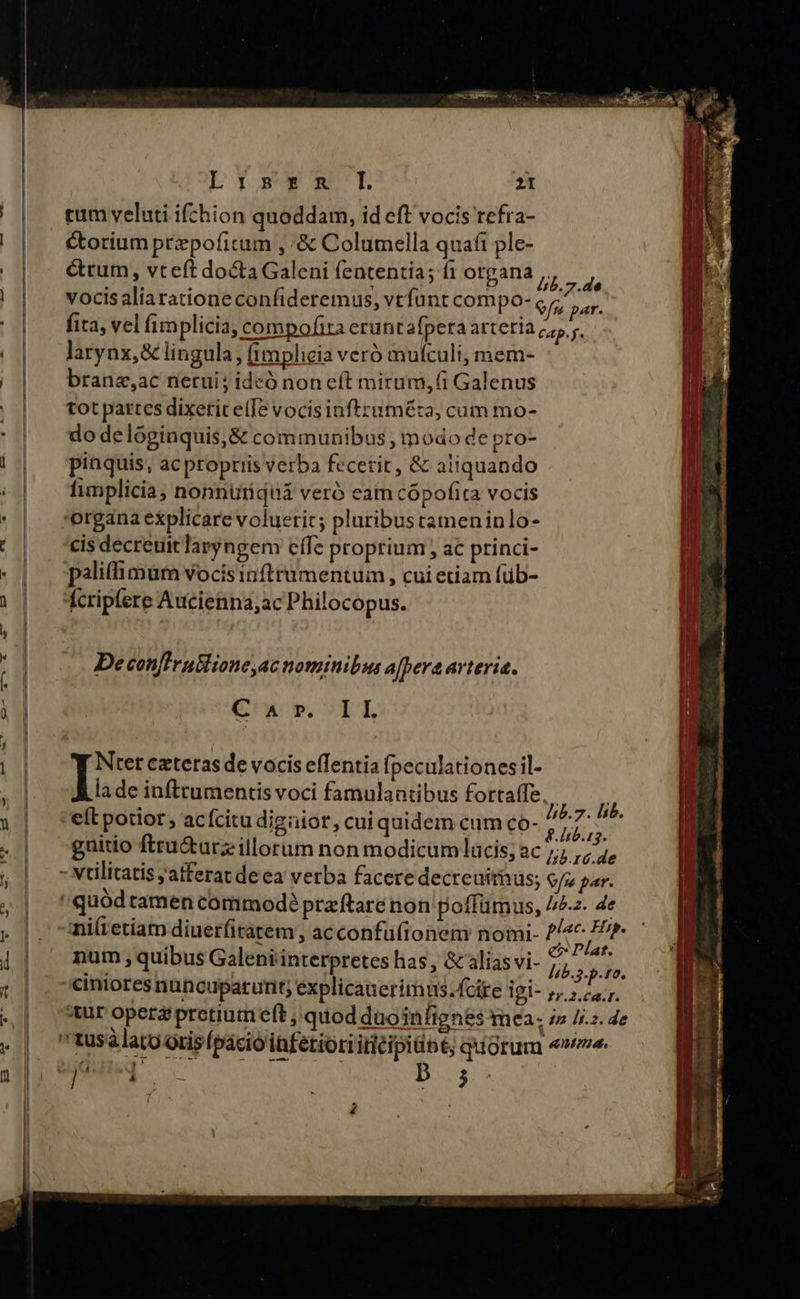 LIBER I. 21
tum veluti iſchion quoddam, id eſt vocis refra-
ctorium præpoſitum , & Columella quaſi ple-
ctrum, vt eſt docta Galeni ſententia; ſi organa
vocis alia ratione conſideremus, vt ſunt compo-
ſita, vel ſimplicia, compoſita erunt aſpera arteria
larynx,& lingula, ſimplicia verò muſculi, mem-
branæ,ac nerui; ideò non eſt mirum,ſi Galenus
tot partes dixerit eſſe vocis inſtrumẽta, cum mo-
do de lõginquis,& communibus, modo de pro-
pinquis, ac propriis verba fecerit, & aliquando
ſimplicia, nonnunquã verò eam cõpoſita vocis
organa explicare voluerit; pluribus tamen in lo-
cis decreuit laryngem eſſe proprium, ac princi-
paliſſimum vocis inſtrumentum, cui etiam ſub-
ſcripſere Aucienna,ac Philocopus.
lib.7.de
vſu par.
cap.5.
De conſtructione,ac nominibus aſpera arteriæ.
CAP. II.
INter cæteras de vocis eſſentia ſpeculationes il-
la de inſtrumentis voci famulantibus fortaſſe
eſt potior, ac ſcitu dignior, cui quidem cum co-
gnitio ſtructuræ illorum non modicum lucis, ac
vtilitatis,afferat de ea verba facere decreuimus;
quòd tamen commodè præſtare non poſſumus,
niſi etiam diuerſitatem, ac confuſionem nomi-
num, quibus Galeni interpretes has, & alias vi-
ciniores nuncuparunt, explicauerimus. ſcire igi-
tur operæ pretium eſt, quod duo inſignes mea-
tus à lato oris ſpacio inferiori incipiunt, quorum
lib.7. lib.
8.lib.13.
lib.16.de
vſu par.
lib.2. de
plac. Hip.
& Plat.
lib.3.p.10.
tr.2.ca.1.
in li.2. de
anima.
B 3